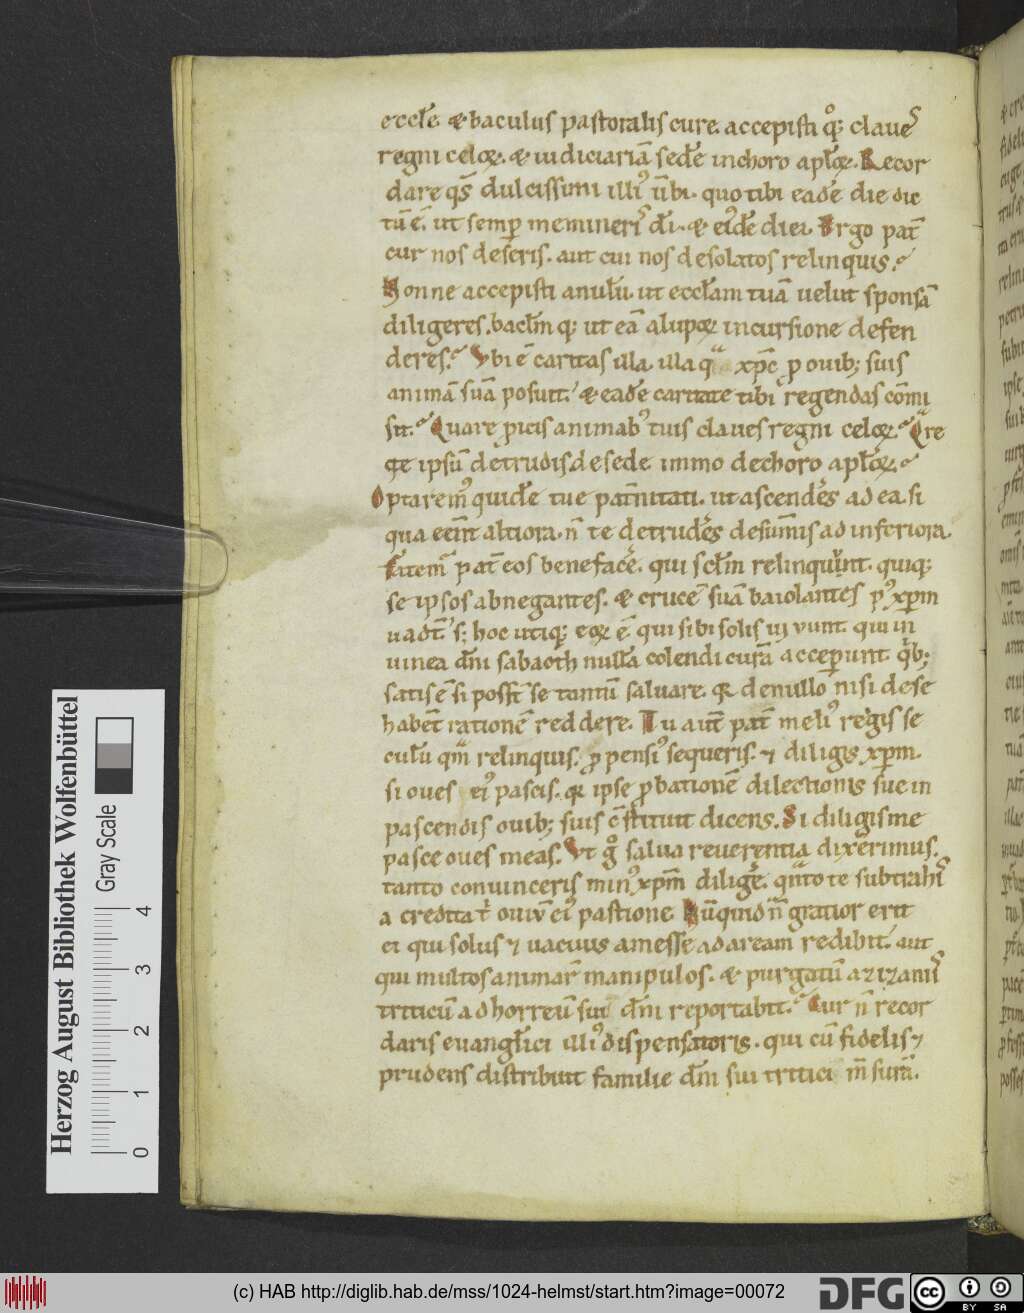 eccl̄e. & baculus pastoralis cure. accepisti q̊; claues
regni celoꝝ. & iudiciariā sedē in choro apl̄oꝝ. Recor
dare q̄s dulcissimi illiꝰ ūbi. quo tibi eadē die dic
tū ē. ut semp̄ memineris dn̄i. & eiꝰdē diei. Ergo pat̄
cur nos deseris. aut cui nos desolatos relinquis.
Nonne accepisti anulū. ut eccl̄am tuā uelut sponsā
diligeres. bacl̄m q; ut eā a lupoꝝ incursione defen
deres. Vbi ē caritas illa. illa qua xp̄c ꝓ ouib; suis
animā suā posuit. & eadē caritate tibi regendas cōmi
sit. Quare ꝓicis animabꝰ tuis claues regni celoꝝ. Q̄re
te ipsū detrudis de sede immo de choro apl̄oꝝ.
Optaremꝰ quidē tue pat̄nitati. ut ascenderes ad ea. si
qua eēnt altiora. n̄ te detruderes de sum̄is ad inferiora.
pat̄ eos benefacere. qui scl̄m relinquunt. quiq;
se ipsos abnegantes. & crucē suā baiolantes pꝰ xp̄m
uadt̄. s; hoc utiq; eoꝝ ē qui sibi solis uiuunt. qui in
uinea dn̄i sabaoth nullā colendi curā acceperunt. qib;
satis ē si possn̄t se tantū saluare. qꝛ de nullo nisi de se
habēt rationē reddere. Tu aut̄ pat̄ meliꝰ regis se
culū qm̄ relinquis. ꝓpensiꝰ sequeris. ⁊ diligis xp̄m.
si oues eiꝰ pascis. qꝛ ipse ꝓbationē dilectionis sue in
pascendis ouib; suis c̄stituit dicens. Si diligis me
pasce oues meas. Vt g̊ salua reuerentia dixerimus.
tanto conuinceris minꝰ xp̄m diligere. quanto te subtrahis
a credita t̄ ouiū eiꝰ pastione. Nūquid n̄ gratior erit
ei qui solus ⁊ uacuus a messe ad aream redibit. aut
qui multos animar̄ manipulos. & purgatū a zizaniis
triticū ad horreū sui dn̄i reportabit. Cur n̄ recor
daris euangl̄ici illiꝰ dispensatoris. qui cū fidelis ⁊
prudens distribuit familie dn̄i sui tritici m̄surā.
Herzog August Bibliothek Wolfenbüttel
Gray Scale
0 1 2 3 4
(c) HAB http://diglib.hab.de/mss/1024-helmst/start.htm?image=00072
DFG
cc BY SA